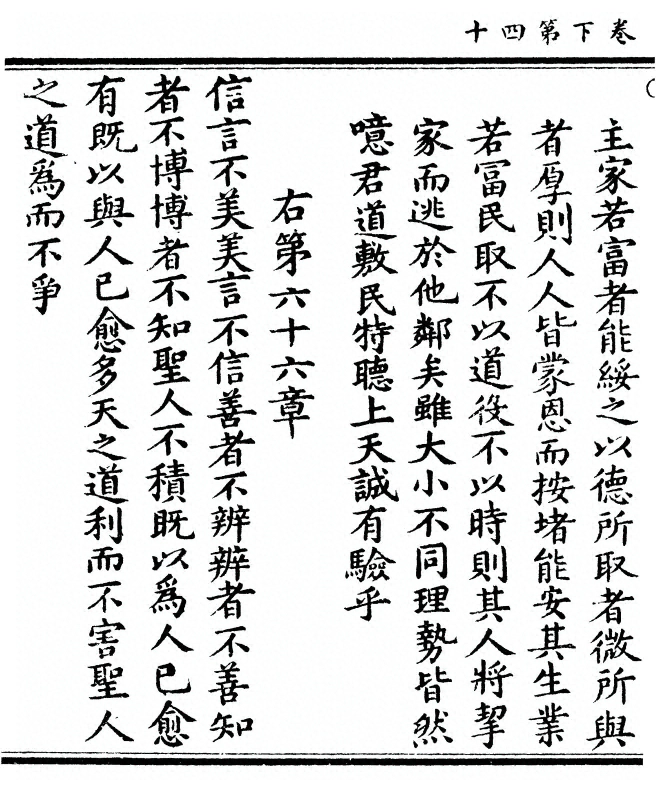 卷下第四十
主家若富者能綏之以德所取者微所與
者厚則人人皆蒙恩而按堵能安其生業
若富民取不以道役不以時則其人將挈
家而逃於他鄰矣雖大小不同理勢皆然
噫君道敷民特聽上天誠有驗乎
右第六十六章
信言不美美言不信善者不辨辨者不善知
者不博博者不知聖人不積既以為人已愈
有既以與人已愈多天之道利而不害聖人
之道為而不爭